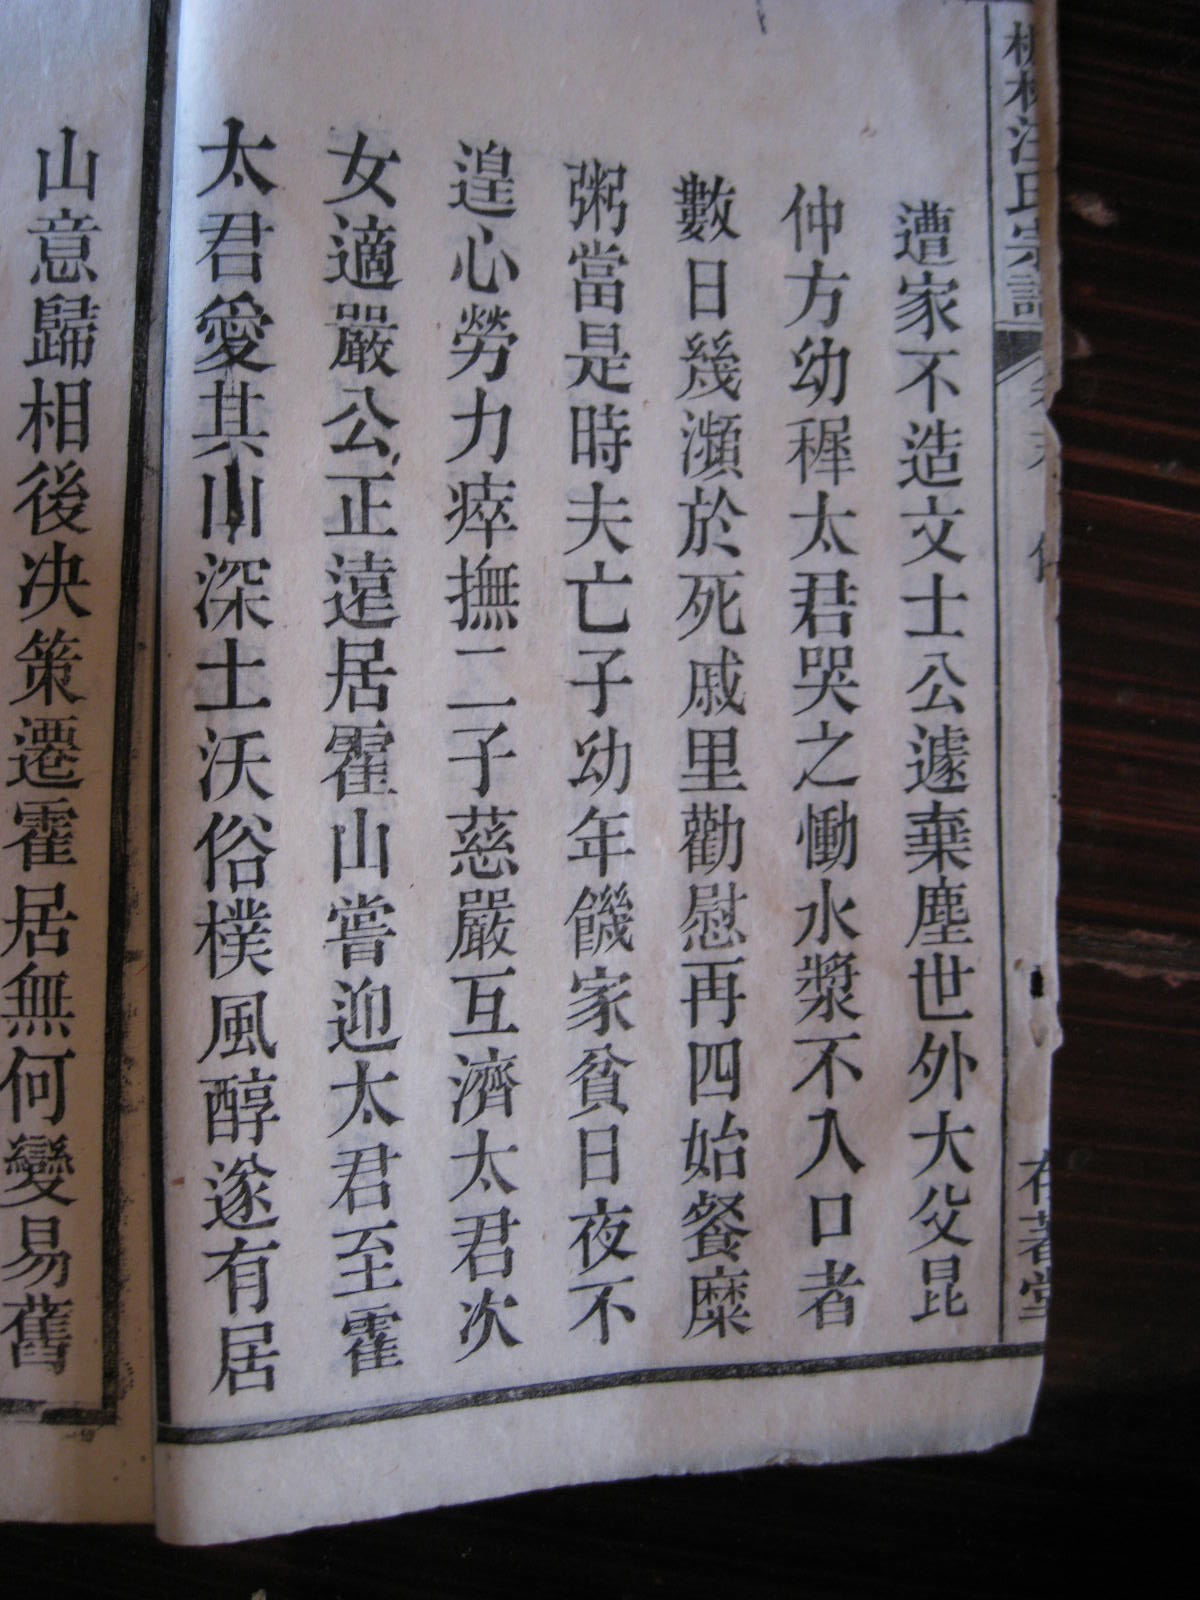 汪氏宗譜
遭家不造文士公遽棄塵世外大父昆
仲方幼穉太君哭之慟水漿不入口者
數日幾濒於死戚里勸慰再四始餐糜
粥當是時夫亡子幼年饑家貧日夜不
遑心勞力瘁撫二子慈嚴互濟太君次
女適嚴公正遠居霍山嘗迎太君至霍
太君愛其山深土沃俗樸風醇遂有居
山意歸相後决策遷霍居無何變易舊